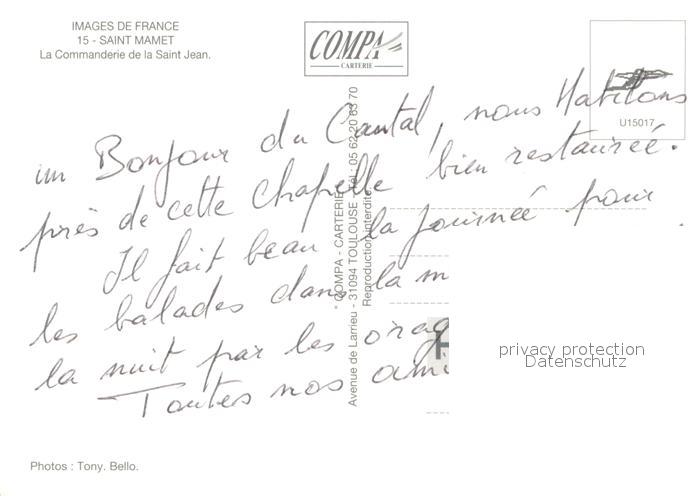 IMAGES DE FRANCE
15 - SAINT MAMET
La Commanderie de la Saint Jean.
COMPA
CARTERIE
U15017
un Bonjour du Cantal, nous Habitons
près de cette chapelle bien restaurée.
Il fait beau la journée pour
les balades dans la m
la nuit par les orag
Toutes nos ami
© COMPA - CARTERIE
Avenue de Larrieu - 31094 TOULOUSE - Tél : 05 62 20 63 70
Reproduction interdite
privacy protection
Datenschutz
Photos : Tony. Bello.